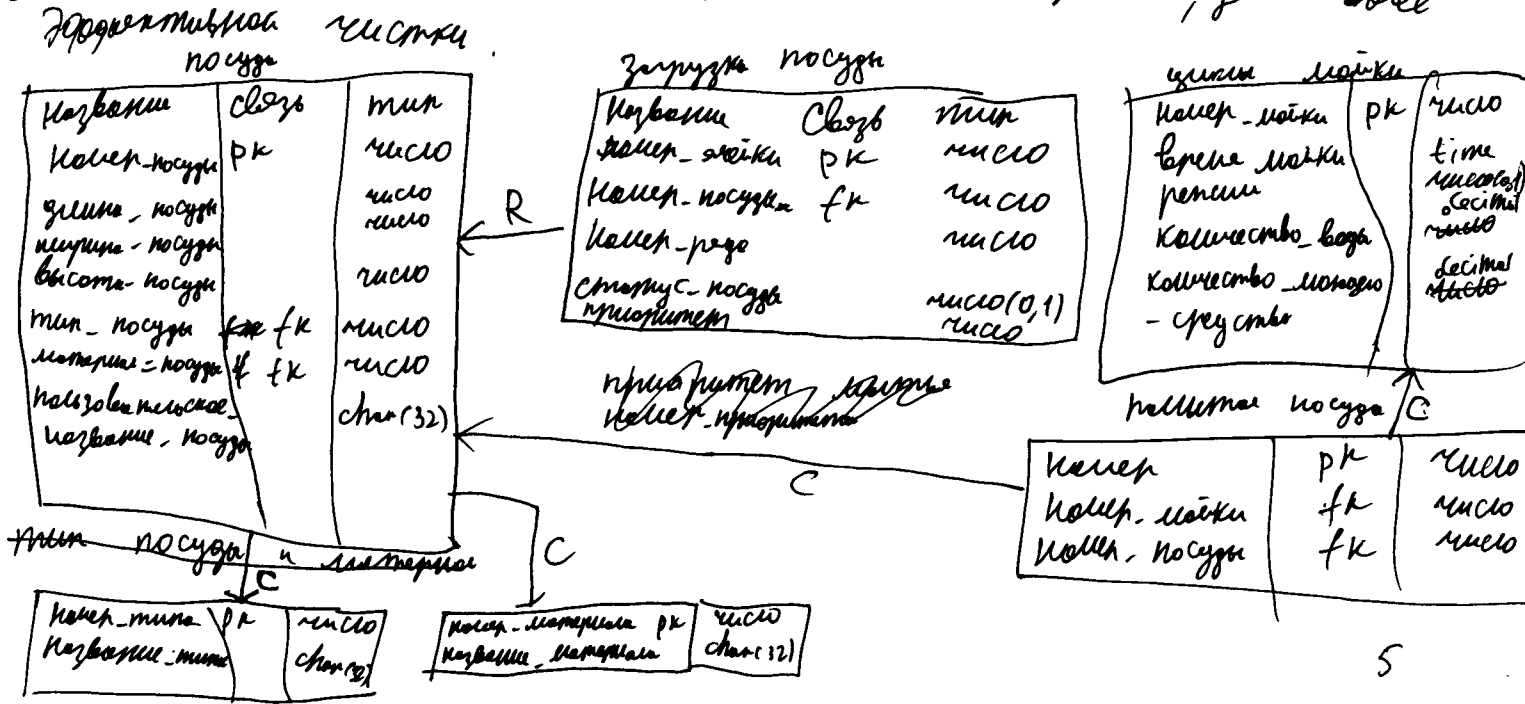 эффективной чистки.
посуда
Название связь тип
Номер_посуды pk число
длина_посуды число
ширина-посуды число
высота-посуды число
тип_посуды fk число
материал_посуды fk число
пользовательское_ char(32)
название_посуды
загрузка посуды
Название Связь тип
номер_ячейки pk число
Номер_посуды fk число
Номер_ряда число
статус_посуды число(0,1)
приоритет число
циклы мойки
Номер_мойки pk число
время мойки time
режим число(0,1)
количество_воды decimal число
количество_моющего decimal число
-средства
R
приоритет
номер_приоритета
C
помытая посуда
C
Номер pk число
Номер_мойки fk число
Номер_посуды fk число
тип посуды и материал
C
C
Номер_типа pk число
Название_типа char(32)
номер_материала pk число
название_материала char(32)
5